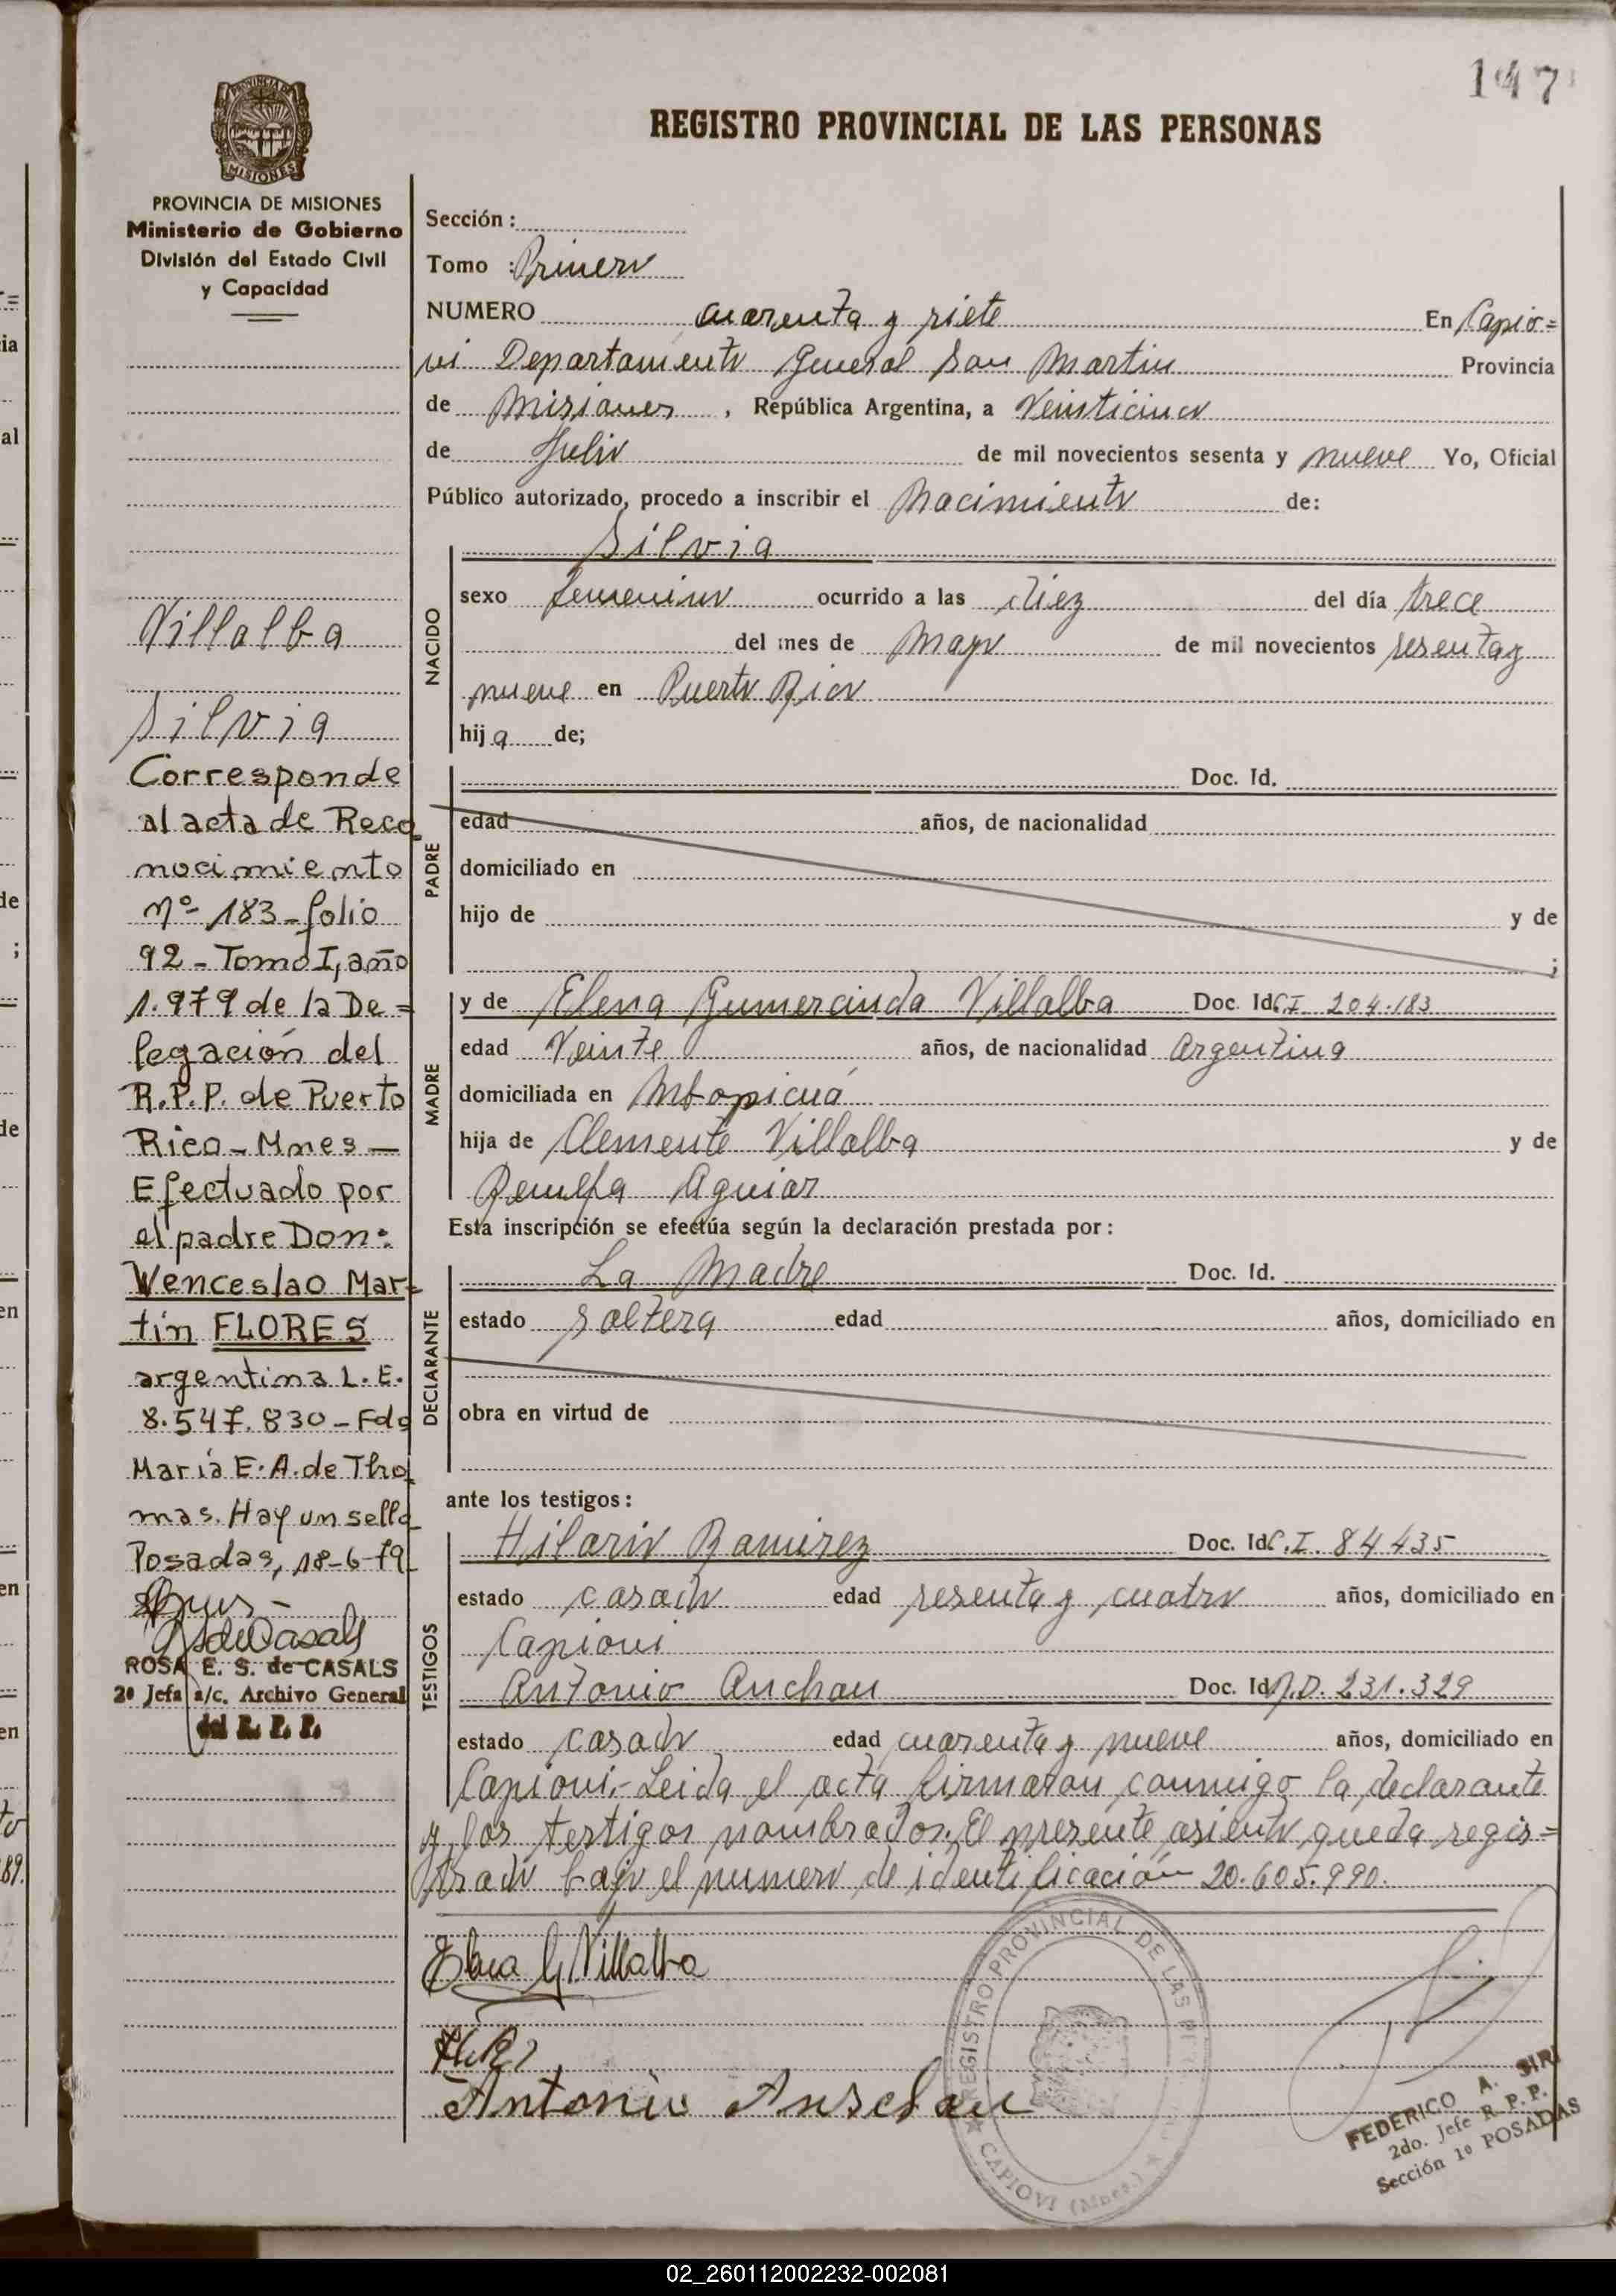 147
PROVINCIA DE MISIONES
Ministerio de Gobierno
División del Estado Civil
y Capacidad
REGISTRO PROVINCIAL DE LAS PERSONAS
Sección :
Tomo : Primero
NUMERO cuarenta y siete En Capio=
vi Departamento General San Martin Provincia
de Misiones , República Argentina, a Veinticinco
de Julio de mil novecientos sesenta y nueve Yo, Oficial
Público autorizado, procedo a inscribir el Nacimiento de:
NACIDO
Silvia
sexo femenino ocurrido a las diez del día trece
del mes de Mayo de mil novecientos sesenta y
nueve en Puerto Rico
hija de;
PADRE
Doc. Id.
edad años, de nacionalidad
domiciliado en
hijo de y de
;
MADRE
y de Elena Gumercinda Villalba Doc. Id. C.I. 204.183
edad Veinte años, de nacionalidad Argentina
domiciliada en Mbopicuá
hija de Clemente Villalba y de
Aguiar
Esta inscripción se efectúa según la declaración prestada por :
DECLARANTE
La Madre Doc. Id.
estado Soltera edad años, domiciliado en
obra en virtud de
ante los testigos :
TESTIGOS
Hilario Ramirez Doc. Id. C.I. 84435
estado casado edad sesenta y cuatro años, domiciliado en
Capiovi
Antonio Anchau Doc. Id. 231.329
estado casado edad cuarenta y nueve años, domiciliado en
Capiovi.- Leida el acta firmaron conmigo la declarante
y los testigos nombrados. El presente asiento queda regis=
trado bajo el numero de identificación 20.605.990.
Elena G Villalba
Antonio Anschau
REGISTRO PROVINCIAL DE LAS PE
CAPIOVI (Mnes.)
FEDERICO A. SIRI
2do. Jefe R. P. P.
Sección 1º POSADAS
Villalba
Silvia
Corresponde
al acta de Reco
nocimiento
Nº 183-folio
92-Tomo I, año
1.979 de la De=
legación del
R.P.P. de Puerto
Rico-Mnes-
Efectuado por
el padre Don:
Wenceslao Mar=
tín FLORES
argentina L.E.
8.547.830-Fdo
María E.A. de Tho
mas. Hay un sello
Posadas, 18-6-79
ROSA E. S. de CASALS
2º Jefa a/c. Archivo General
del R. P. P.
02_260112002232-002081